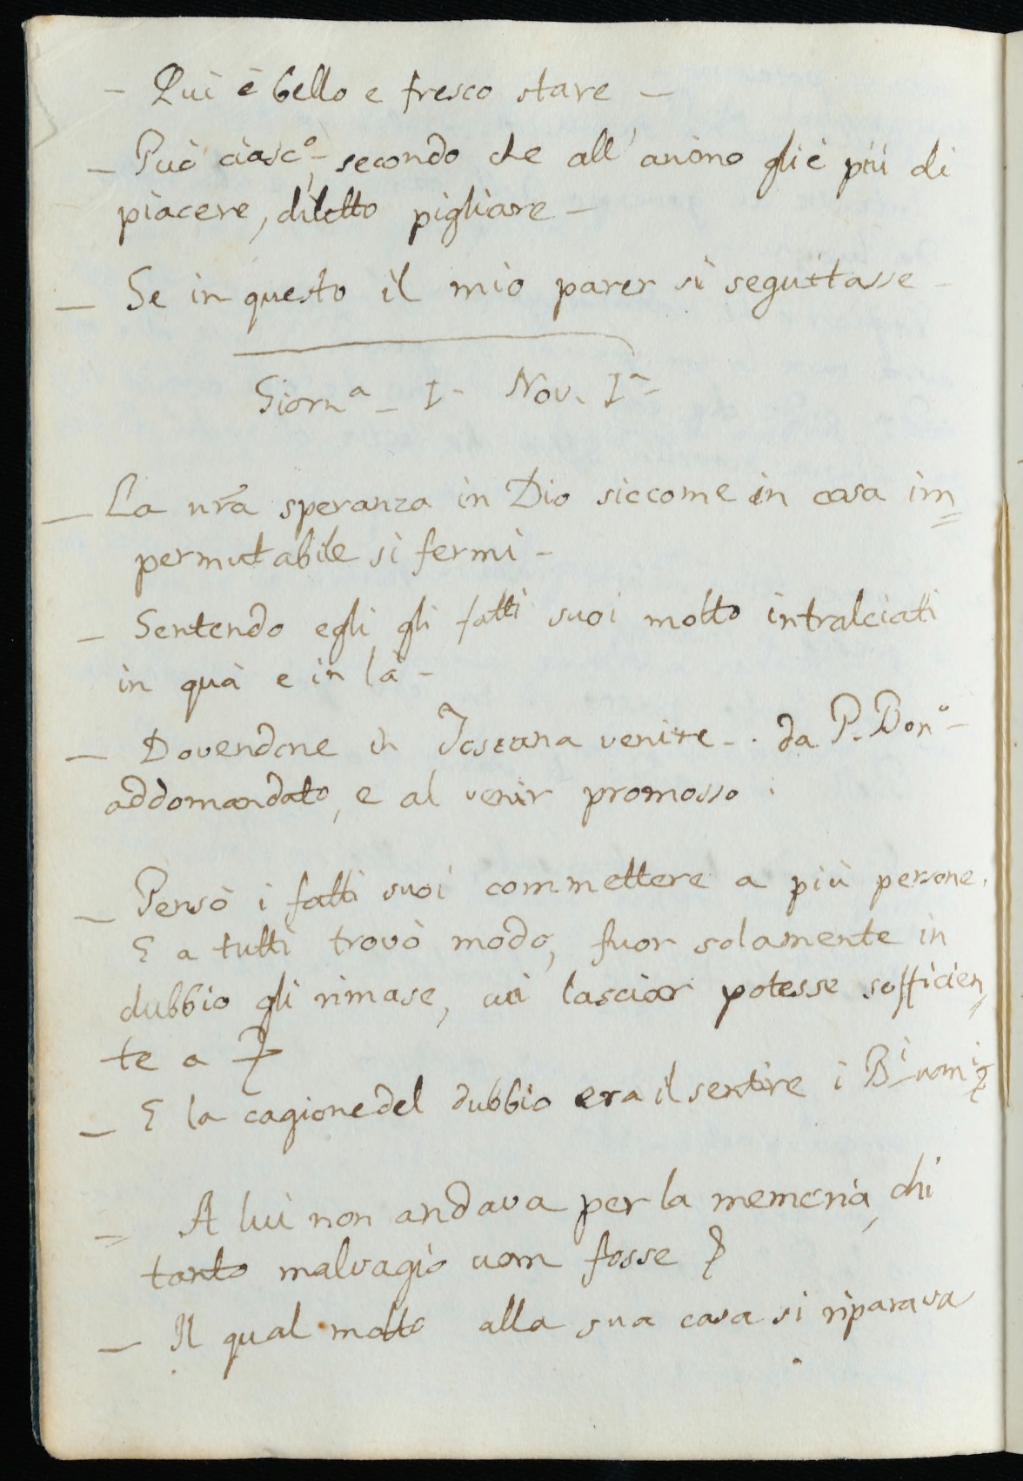 – Quì è bello e fresco stare –
– Può ciasc.º, secondo che all' animo gli è più di
piacere, diletto pigliare –
– Se in questo il mio parer si seguitasse –
Giorn.ª – I – Nov. Iª –
– La nrã speranza in Dio siccome in cosa im=
permutabile si fermi –
– Sentendo egli gli fatti suoi molto intralciati
in quà e in là –
– Dovendone in Toscana venire – . da P. Bon.º –
addomandato, e al venir promosso :
– Pensò i fatti suoi commettere a più persone.
E a tutti trovò modo, fuor solamente in
dubbio gli rimase, cui lasciar potesse sofficien=
te a
– E la cagione del dubbio era il sentire i B.i uom.i
– A lui non andava per la memoria, chi
tanto malvagio uom fosse
– Il qual molto alla sua casa si riparava